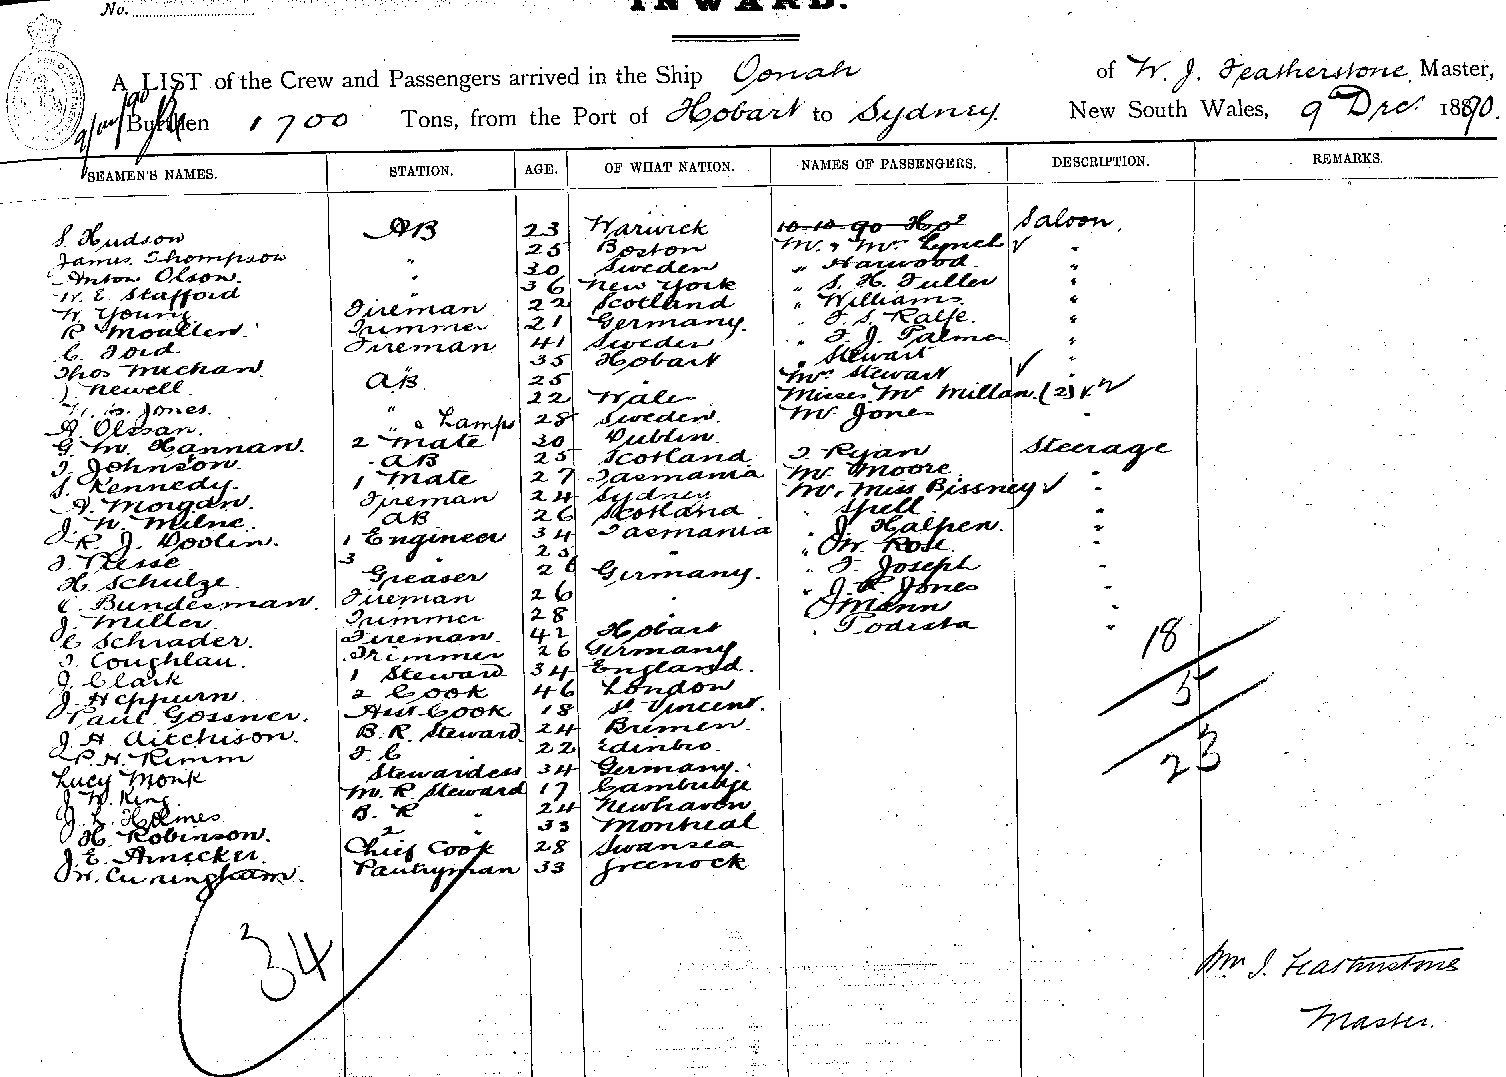 No.
INWARD.
A LIST of the Crew and Passengers arrived in the Ship Oonah of W. J. Featherstone, Master,
Burthen 1700 Tons, from the Port of Hobart to Sydney New South Wales, 9th Dec. 1890.
SEAMEN'S NAMES. STATION. AGE. OF WHAT NATION. NAMES OF PASSENGERS. DESCRIPTION. REMARKS.
S. Hudson AB 23 Warwick 10-10-90 Saloon
James Thompson " 25 Boston Mr & Mrs Lynch "
Anton Olson " 30 Sweden " Harwood "
W. E. Stafford " 36 New York " S. H. Fuller "
W. Young Fireman 22 Scotland " Williams "
R Moullen Trimmer 21 Germany " F. S. Ralfe "
C. Ford Fireman 41 Sweden " F. J. Palmer "
Thos Michan 35 Hobart " Stewart "
J Newell AB 25 " Mrs Stewart
H. G. Jones " 22 Wales Misses McMillan (2)
A Olssan " & Lamps 28 Sweden Mr Jones "
G. M. Hannan 2 Mate 30 Dublin
J. Johnson AB 25 Scotland J Ryan Steerage
S. Kennedy 1 Mate 27 Tasmania Mr Moore "
A. Morgan Fireman 24 Sydney Mr, Miss Bissney "
J. W. Milne AB 26 Scotland " Spell "
R. J. Doolin 1 Engineer 34 Tasmania " J. Halpen "
J. 3 " 25 " " W. Rose "
H. Schulze Greaser 26 Germany " F. Joseph "
C. Bundesman Fireman 26 " " J. R. Jones "
J. Miller Trimmer 28 " J Mann
C Schrader Fireman 42 Hobart " Todista "
J. Coughlan Trimmer 26 Germany
J Clark 1 Steward 34 England
J Heppurn 2 Cook 46 London
Paul Gossner Asst Cook 18 St Vincent
J. A. Aitchison B. R. Steward 24 Bremen
P. H. Rimm F. C 22 Edinbro
Lucy Monk Stewardess 34 Germany
J W King M. R Steward 17 Cambridge
J. L. Holmes B. R " 24 Newhaven
H. Robinson 2 " 33 Montreal
J. E. Amecker Chief Cook 28 Swansea
W. Cuningham Pantryman 33 Greenock
18
5
23
34
Wm J. Featherstone
Master.